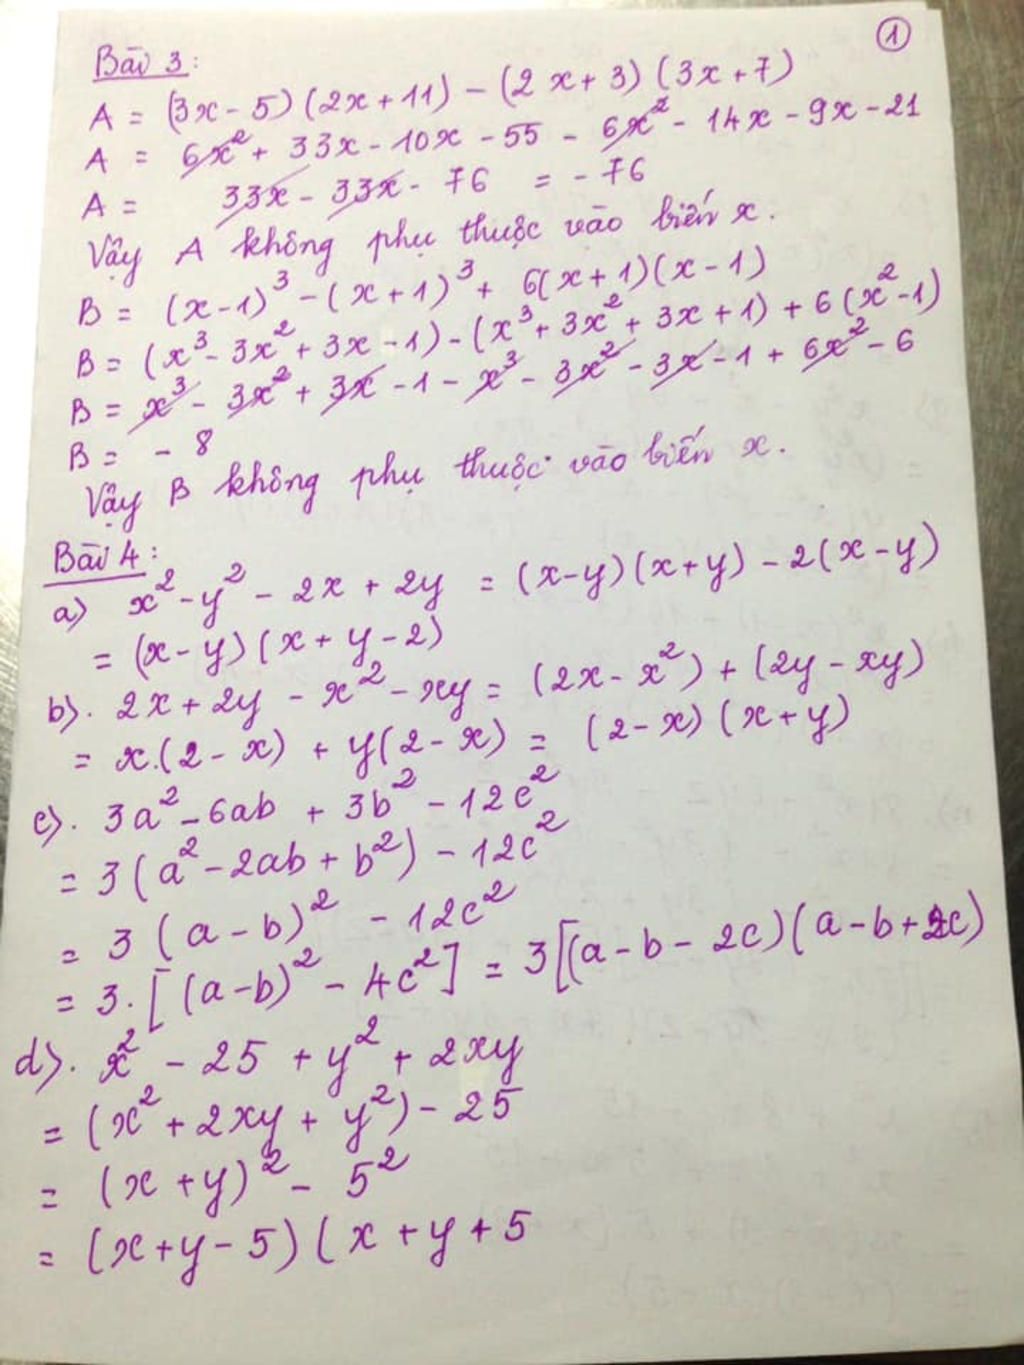 ①
Bài 3:
A = (3x - 5)(2x + 11) - (2x + 3)(3x + 7)
A = 6x² + 33x - 10x - 55 - 6x² - 14x - 9x - 21
A = 33x - 33x - 76 = - 76
Vậy A không phụ thuộc vào biến x.
B = (x - 1)³ - (x + 1)³ + 6(x + 1)(x - 1)
B = (x³ - 3x² + 3x - 1) - (x³ + 3x² + 3x + 1) + 6(x² - 1)
B = x³ - 3x² + 3x - 1 - x³ - 3x² - 3x - 1 + 6x² - 6
B = - 8
Vậy B không phụ thuộc vào biến x.
Bài 4:
a) x² - y² - 2x + 2y = (x - y)(x + y) - 2(x - y)
= (x - y)(x + y - 2)
b). 2x + 2y - x² - xy = (2x - x²) + (2y - xy)
= x.(2 - x) + y(2 - x) = (2 - x)(x + y)
c). 3a² - 6ab + 3b² - 12c²
= 3(a² - 2ab + b²) - 12c²
= 3(a - b)² - 12c²
= 3.[(a - b)² - 4c²] = 3[(a - b - 2c)(a - b + 2c)
d). x² - 25 + y² + 2xy
= (x² + 2xy + y²) - 25
= (x + y)² - 5²
= (x + y - 5)(x + y + 5